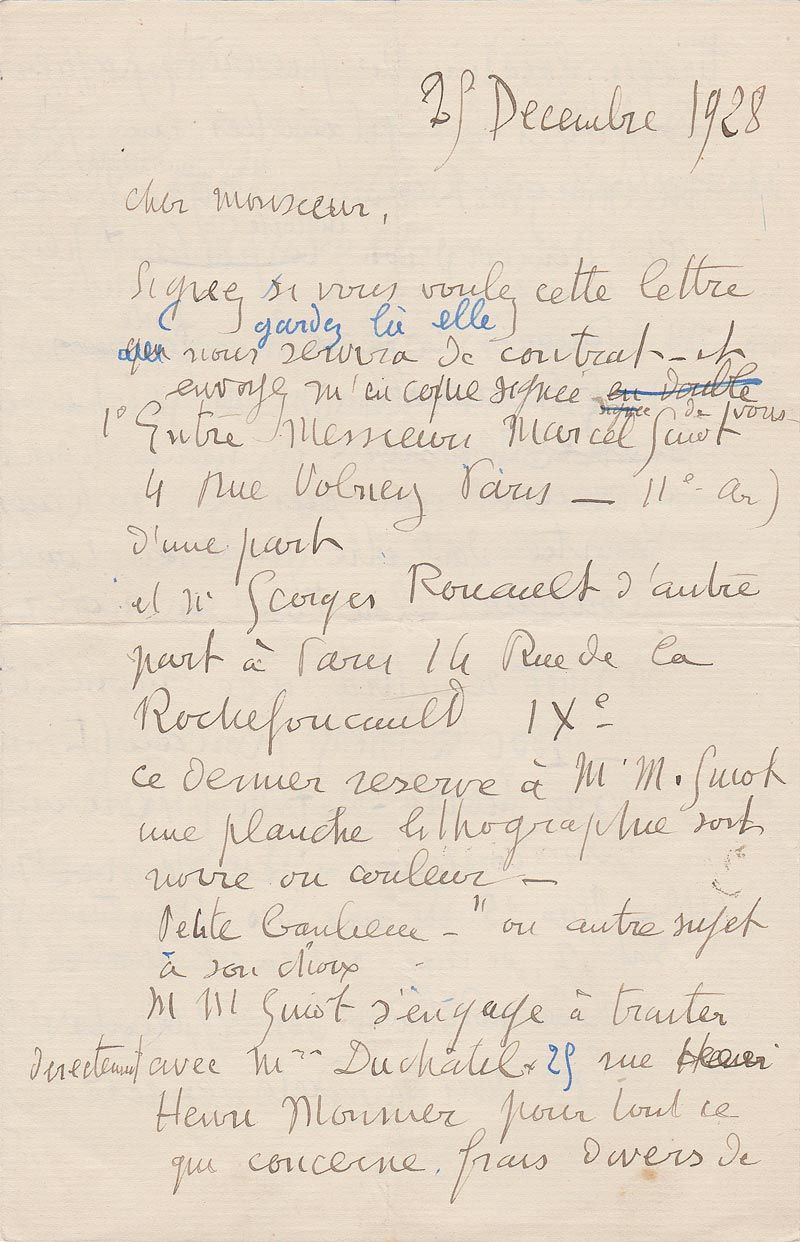 25 Decembre 1928
cher monsieur,
Signez si vous voulez cette lettre
gardez la elle
qui nous servira de contrat - et
envoyez m'en copie signée en double
signée de vous
1° Entre Messieurs Marcel Guiot
4 Rue Volney Paris — 11e ar)
d'une part
et Mr Georges Rouault d'autre
part à Paris 14 Rue de la
Rochefoucauld IXe
ce dernier reserve à Mr M. Guiot
une planche lithographie soit
noire ou couleur —
Petite banlieue - " ou autre sujet
à son choix
M M Guiot s'engage à traiter
directement avec Duchâtel 25 rue Henri
Henri Monnier pour tout ce
qui concerne frais divers de